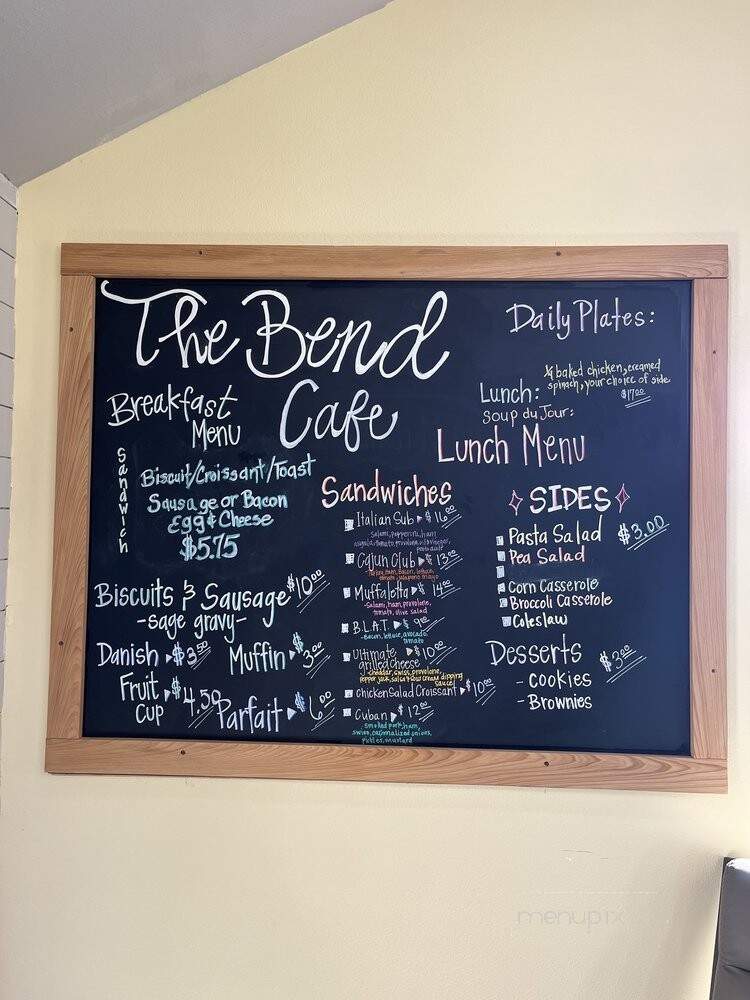 The Bend
Cafe
Breakfast
Menu
Sandwich
Biscuit/Croissant/Toast
Sausage or Bacon
Egg & Cheese
$5.75
Biscuits & Sausage $10.00
-sage gravy-
Danish $3.50
Muffin $3.00
Fruit
Cup $4.50
Parfait $6.00
Daily Plates:
Lunch: ¼ baked chicken, creamed
spinach, your choice of side
$17.00
Soup du Jour:
Lunch Menu
Sandwiches
Italian Sub $16.00
Salami, pepperoni, ham
Cajun Club $13.00
Turkey, ham, bacon, lettuce,
tomato, jalapeno mayo
Muffaletta $14.00
-Salami, ham, provolone,
tomato, olive salad
B.L.A.T. $9.00
-Bacon, lettuce, avocado,
tomato
Ultimate $10.00
grilled cheese
-cheddar, swiss, provolone,
pepper jack, salsa & sour cream dipping
sauce
Chicken Salad Croissant $10.00
Cuban $12.00
smoked pork, ham,
swiss, caramalized onions,
pickles, mustard
SIDES
Pasta Salad $3.00
Pea Salad
Corn Casserole
Broccoli Casserole
Coleslaw
Desserts $3.00
- Cookies
- Brownies
menupix